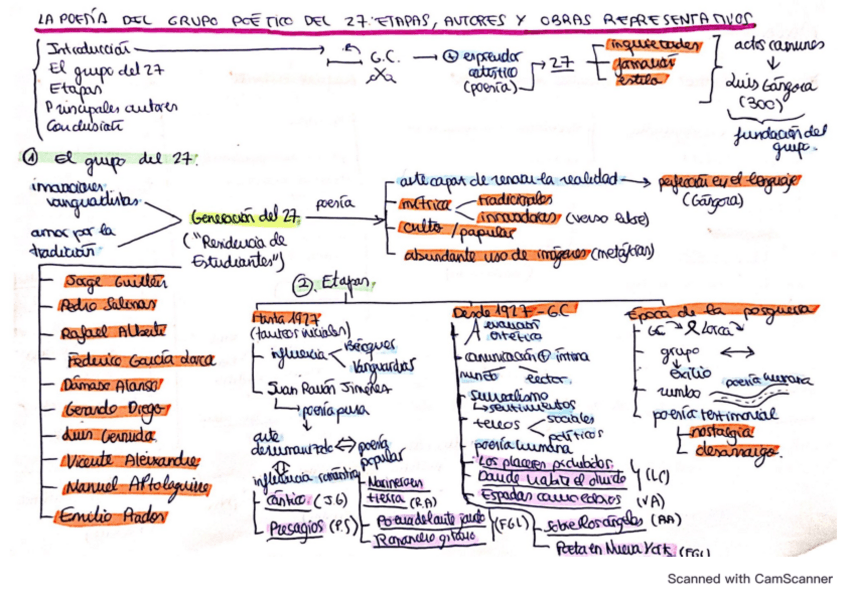 LA POESÍA DEL GRUPO POÉTICO DEL 27: ETAPAS, AUTORES Y OBRAS REPRESENTATIVOS
Introducción
El grupo del 27
Etapas
Principales autores
G.C.
esprendor
artístico
(poesía)
27
inquietudes
formación
estilo
actos comunes
Luis Góngora
(300)
fundación del
grupo.
① El grupo del 27:
vanguardistas
amor por la
tradición
Generación del 27
("Residencia de
Estudiantes")
poesía
arte capaz de renovar la realidad
perfección en el lenguaje
(Góngora)
métrica
tradicionales
innovadoras (verso libre)
culto / popular
abundante uso de imágenes (metáforas)
Jorge Guillén
Pedro Salinas
Rafael Alberti
Federico García Lorca
Dámaso Alonso
Gerardo Diego
Luis Cernuda
Vicente Aleixandre
Manuel Altolaguirre
Emilio Prados
②. Etapas.
Hasta 1927
(tanteos iniciales)
influencia
Bécquer
Vanguardias
Juan Ramón Jiménez
poesía pura
arte
deshumanizado
poesía
popular
influencia romántica
Cántico (J.G)
Presagios (P.S)
Marinero en
tierra (R.A)
Poema del cante jondo
Romancero gitano
(FGL)
Desde 1927 - GC
evolución
estética
comunicación
íntima
mundo
lector.
surrealismo
sentimientos
temas
sociales
políticos
poesía humana
Los placeres prohibidos
Donde habite el olvido
(LC)
Espadas como labios (VA)
Sobre los ángeles (AA)
Poeta en Nueva York (FGL)
Época de la posguerra
GC
Lorca
grupo
exilio
rumbo
poesía humana
poesía testimonial
nostalgia
desarraigo.
Scanned with CamScanner